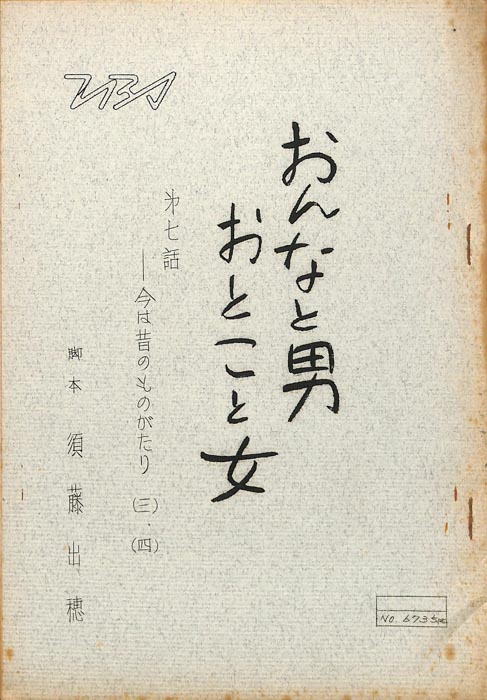 おんなと男
おとこと女
第七話
―今は昔のものがたり(三)、(四)
脚本 須藤出穂
NO. 6735